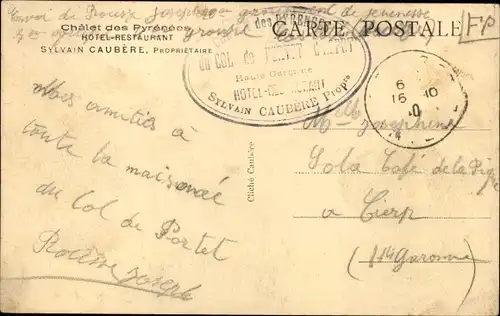 Envoi de Rousse Joseph groupement de jeunesse
Châlet des Pyrénées
HÔTEL-RESTAURANT
SYLVAIN CAUBÈRE, PROPRIÉTAIRE
des PYRENEES
du COL de PORTET D'ASPET
Haute Garonne
HOTEL-RESTAURANT
SYLVAIN CAUBÈRE Propre
CARTE POSTALE
FP
6
15 10
Mes amitiés à
toute la maisonnée
du Col de Portet
Rousse Joseph
Cliché Caubère
Mlle Josephine
Sola Café de la
a Cierp
(Hte Garonne)